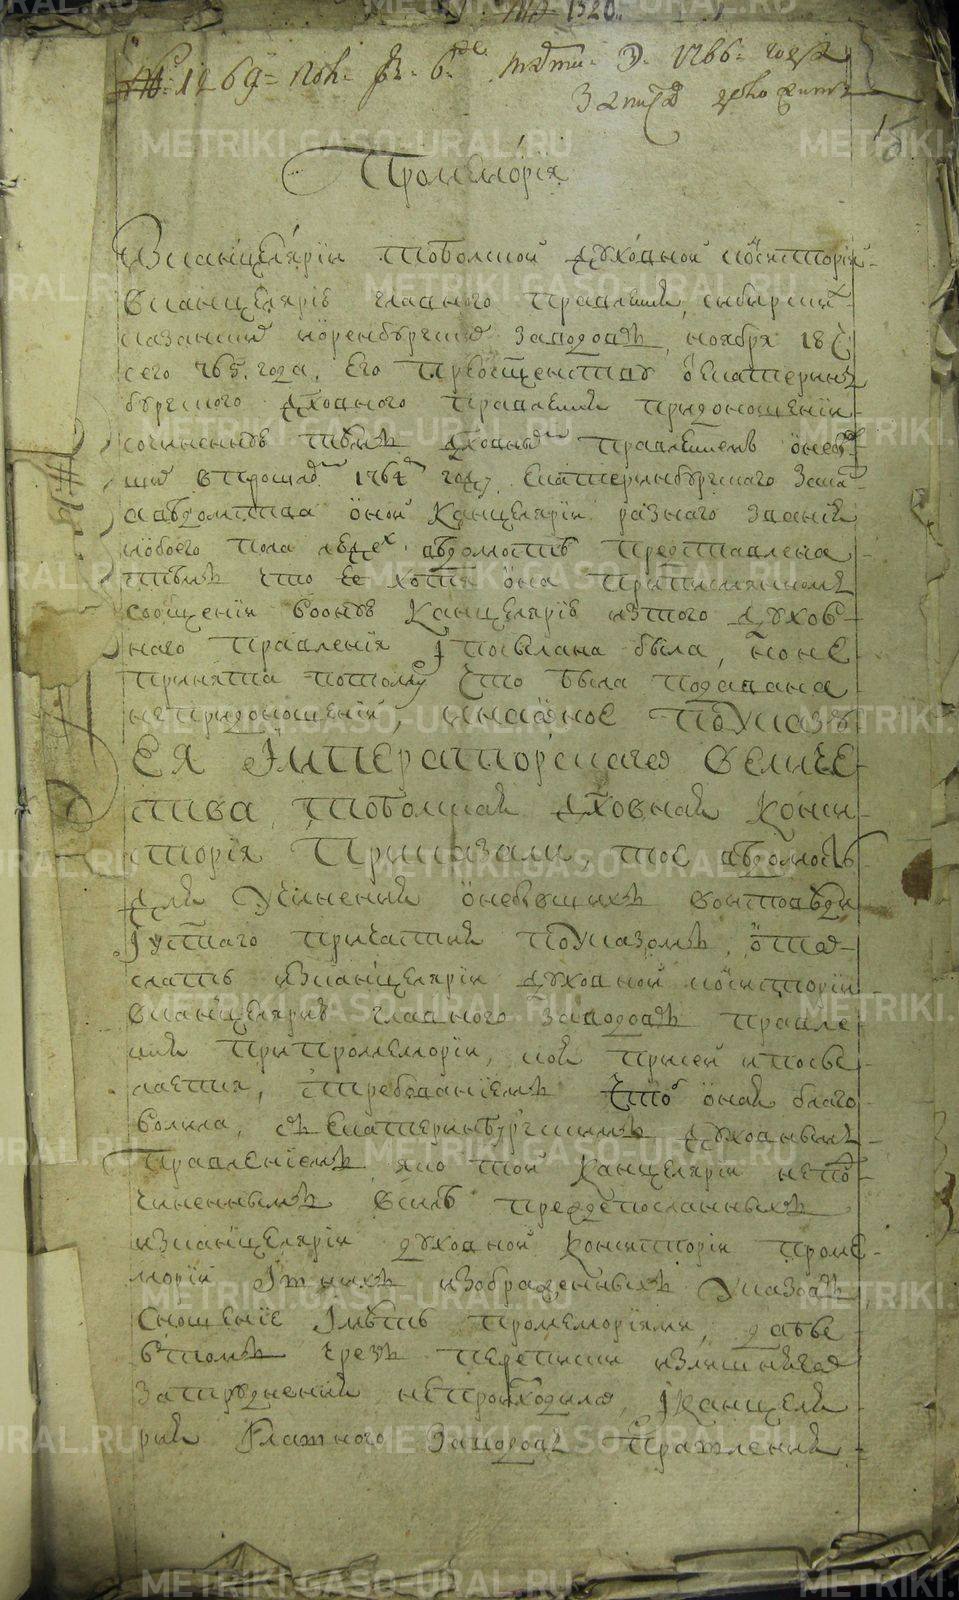 № 1320
№ 1269 = пол. 6. 1766 года
Записав
15
Промеморія
Исканцеляріи тоболской духовной консисторіи
вканцелярію главного правленія сибирскихъ
казанскихъ иоренбургскихъ заводовъ, ноября 18 ч
сего 765 года. Его преосвященству Екатерин
бургского духовного правленія придоношеніи
сочиненная тѣмъ духовнымъ правленіемъ онебыв
шихъ впрошломъ 1764м году, Екатеринбургского заказа
ведомства оной канцеляріи разнаго званія
иобоего пола людех ведомость представлена
тѣмъ что ее хотя она приписменномъ
сообщеніи воную канцелярію изтого духов
наго правленія Iпосылана была, но не
принята потому что была подавана
непридоношеніи, инаоное поуказу
ЕЯ Iмператорскаго величе
ства, тоболская духовная конси
сторія Приказали, тое ведомость
для учиненія онебывшихъ
поуказомъ, ото
слать исканцеляріи духовной консисторіи
вканцелярію главного заводовъ правле
нія припромеморіи, кой присей ипосы
лается, Iтребованіемъ чтоб оная благо
волила, съ Екатеринбургскимъ духовнымъ
правленіемъ яко той канцеляріи непод
чиненнымъ всилу предпосланныхъ
исканцеляріи духовной консисторіи проме
моріи Iтнихъ изображенныхъ указовъ,
сношеніе Iмѣть промеморіями, дабы
втомъ чрезъ переписки излишнягω
затрудненія непроисходило, Iканцеля
рія Главного заводовъ правленія